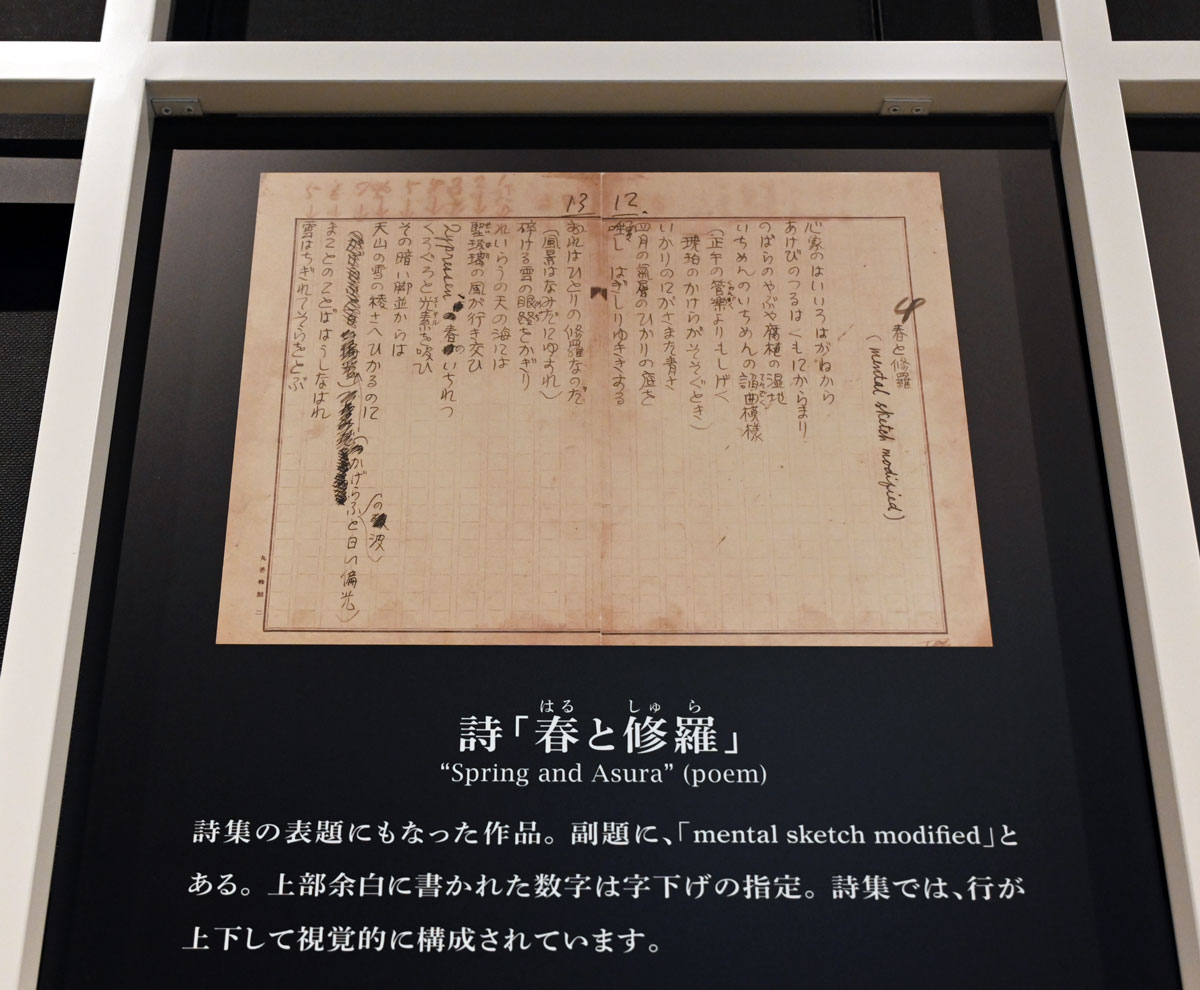 12.
4
春と修羅
(mental sketch modified)
心象のはいいろはがねから
あけびのつるはくもにからまり
のばらのやぶや腐植の湿地
いちめんのいちめんの諂曲模様
(正午の管楽よりもしげく
琥珀のかけらがそそぐとき)
いかりのにがさまた青さ
四月の氣層のひかりの底を
唾し はぎしりゆききする
13
おれはひとりの修羅なのだ
(風景はなみだにゆすれ)
砕ける雲の眼路をかぎり
れいらうの天の海には
聖玻璃の風が行き交ひ
Zypressen 春のいちれつ
くろぐろと光素を吸ひ
その暗い脚並からは
天山の雪の稜さへひかるのに
(かげらふの波と白い偏光)
まことのことばはうしなはれ
雲はちぎれてそらをとぶ
はる しゅ ら
詩「春と修羅」
“Spring and Asura” (poem)
詩集の表題にもなった作品。副題に、「mental sketch modified」と
ある。上部余白に書かれた数字は字下げの指定。詩集では、行が
上下して視覚的に構成されています。